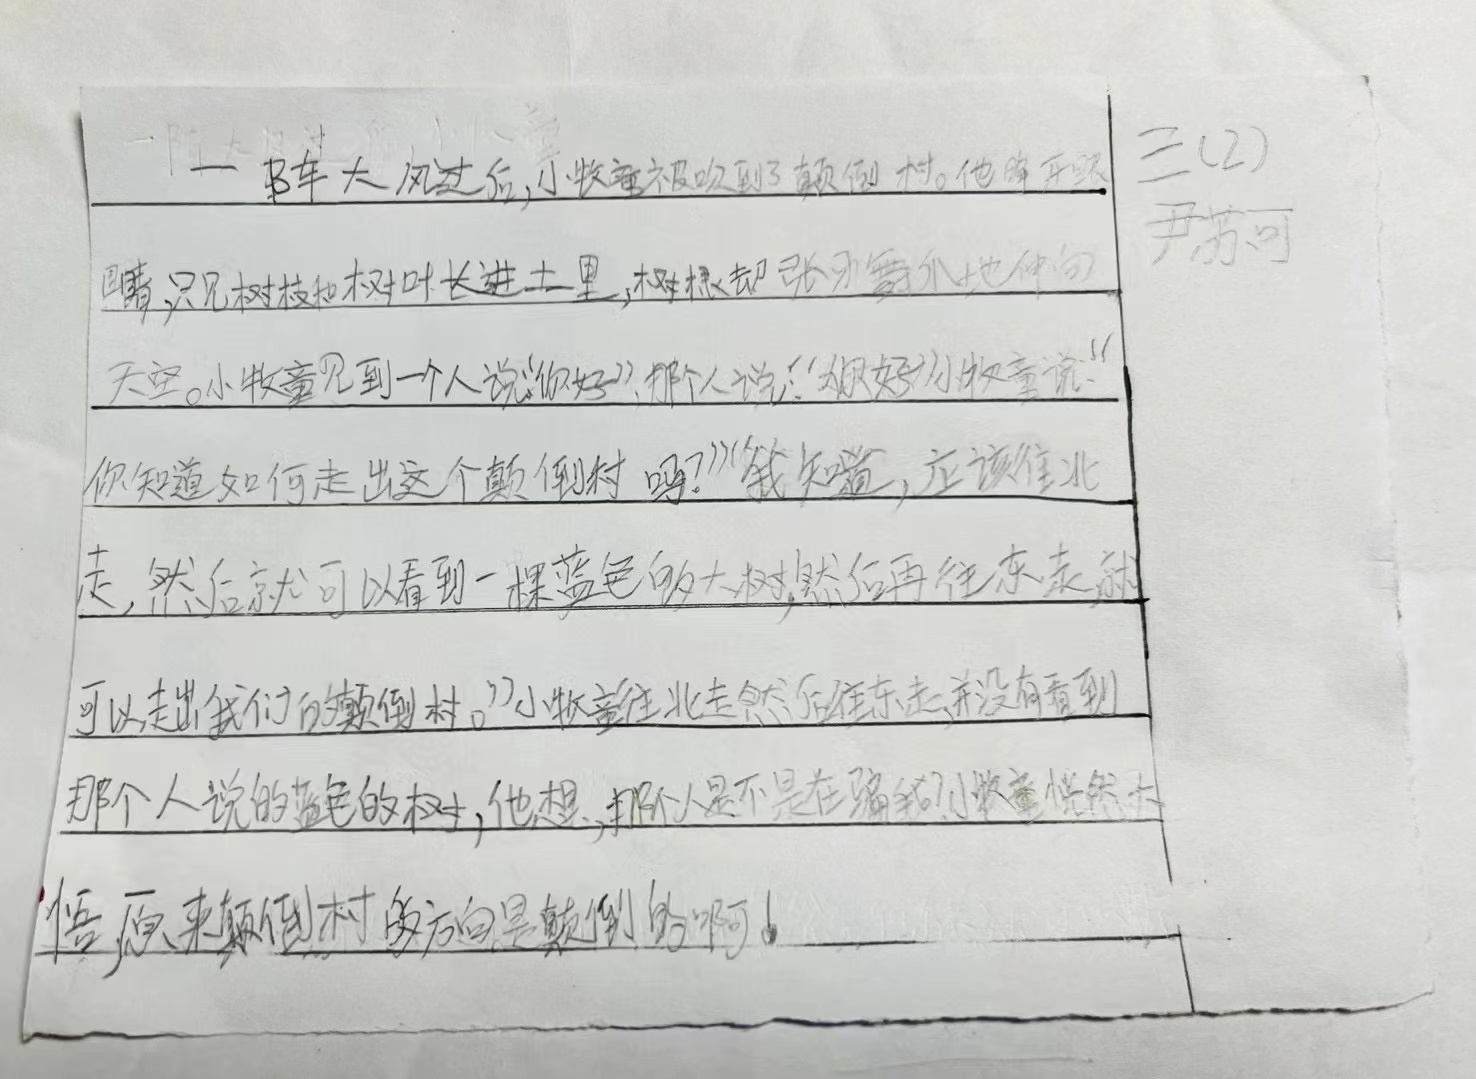 一阵大风过后,小牧童被吹到了颠倒村。他睁开眼
睛,只见树枝和树叶长进土里,树根却张牙舞爪地伸向
天空。小牧童见到一个人说:“你好”,那个人说:“你好”小牧童说:“
你知道如何走出这个颠倒村吗?”“我知道,应该往北
走,然后就可以看到一棵蓝色的大树,然后再往东走,就
可以走出我们的颠倒村。”小牧童往北走然后往东走,并没有看到
那个人说的蓝色的树,他想,那个人是不是在骗我?小牧童恍然大
悟,原来颠倒村的方向是颠倒的啊!
三(2)
尹苏可